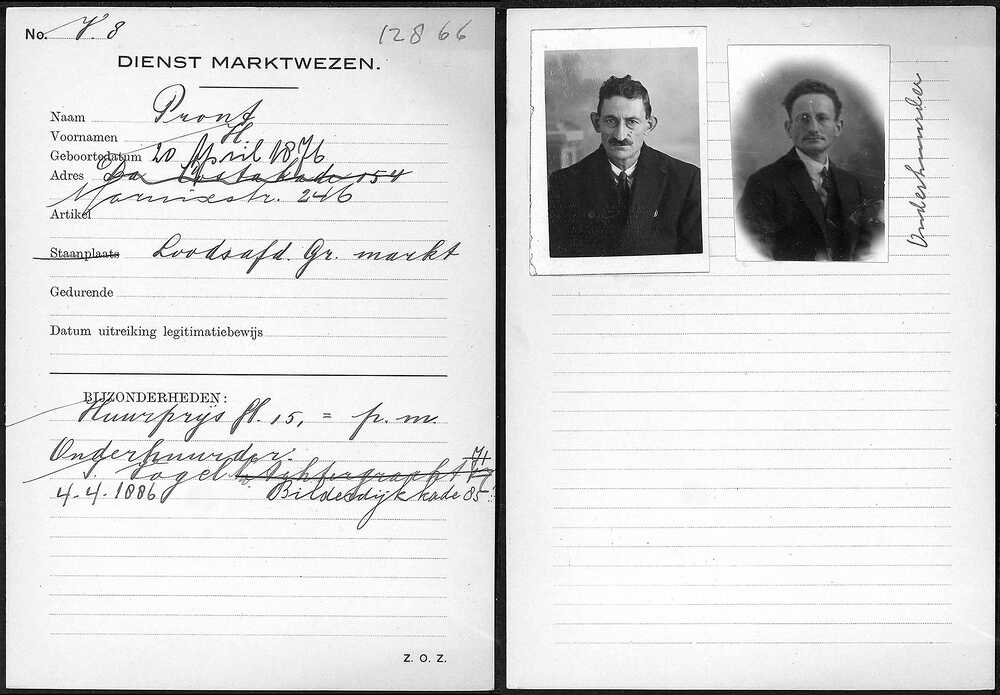 No. V. 8 12866
DIENST MARKTWEZEN.
Naam Pront
Voornamen H
Geboortedatum 20 April 1876
Adres 154
Marnixstr. 246
Artikel
Staanplaats Loodsafd. Gr. markt
Gedurende
Datum uitreiking legitimatiebewijs
BIJZONDERHEDEN:
Huurprijs fl. 15,= p. m.
Onderhuurder:
Vogel Achtergracht 71
4-4-1886 Bilderdijkkade 85
Z. O. Z.
Onderhuurder